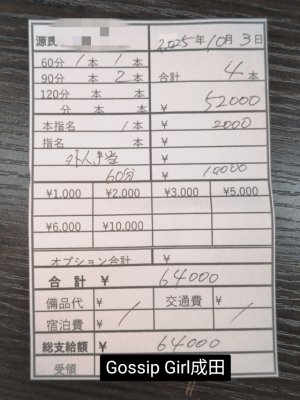 源氏名 2025年10月3日
60分 1本 1本
90分 本 2本 合計 4本
120分 本 本
分 本 本 ¥ 52000
本指名 1本 ¥ 2000
指名 本 ¥
外人手当 ¥
60分 ¥ 10000
¥1,000 ¥2,000 ¥3,000 ¥5,000
¥6,000 ¥10,000
オプション合計 ¥
合計 ¥ 64000
備品代 ¥ / 交通費 ¥ /
宿泊費 ¥
総支給額 ¥ 64000
受領
Gossip Girl成田